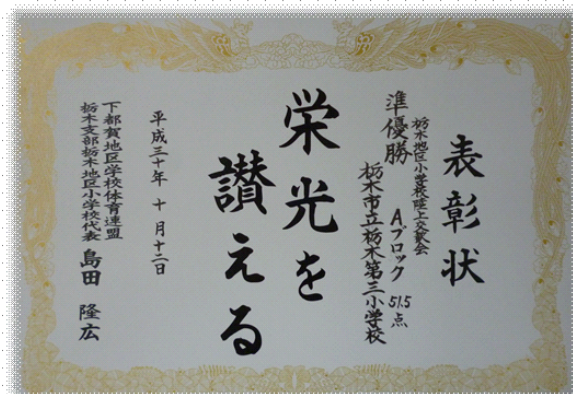 表彰状
栃木地区小学校陸上交歓会
準優勝 Aブロック 51.5点
栃木市立栃木第三小学校
栄光を
讃える
平成三十年 十月十二日
下都賀地区学校体育連盟
栃木支部栃木地区小学校代表 島田 隆広